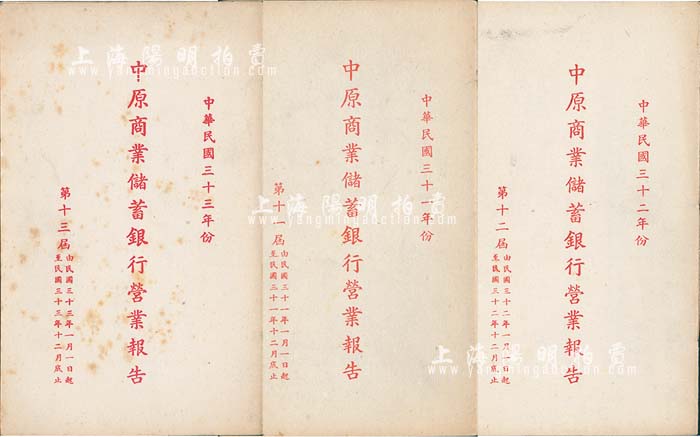 中華民國三十三年份
中原商業儲蓄銀行營業報告
第十三屆
由民國三十三年一月一日起
至民國三十三年十二月底止
中華民國三十一年份
中原商業儲蓄銀行營業報告
第十一屆
由民國三十一年一月一日起
至民國三十一年十二月底止
中華民國三十二年份
中原商業儲蓄銀行營業報告
第十二屆
由民國三十二年一月一日起
至民國三十二年十二月底止
上海陽明拍賣
www.yangmingauction.com
上海陽明拍賣
www.yangmingauction.com
上海陽明拍賣
www.yangmingauction.com
上海陽明拍賣
www.yangmingauction.com